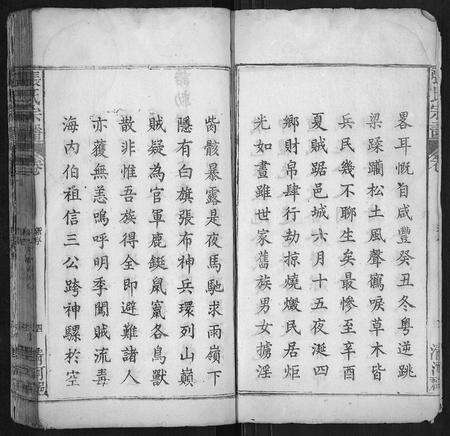 畧耳慨自咸豐癸丑冬粵逆跳
梁蹂躪松土風聲鶴唳草木皆
兵民幾不聊生矣最慘至辛酉
夏賊踞邑城六月十五夜涎四
鄉財帛肆行劫掠燒燬民居炬
光如晝雖世家舊族男女擄淫
胔骸暴露是夜馬馳求雨嶺下
隱有白旗張布神兵環列山巔
賊疑為官軍鹿鋌鼠竄各鳥獸
散非惟吾族得全即避難諸人
亦獲無恙嗚呼明季闖賊流毒
海內伯祖信三公跨神騾於空
張氏宗譜 卷
四
清河